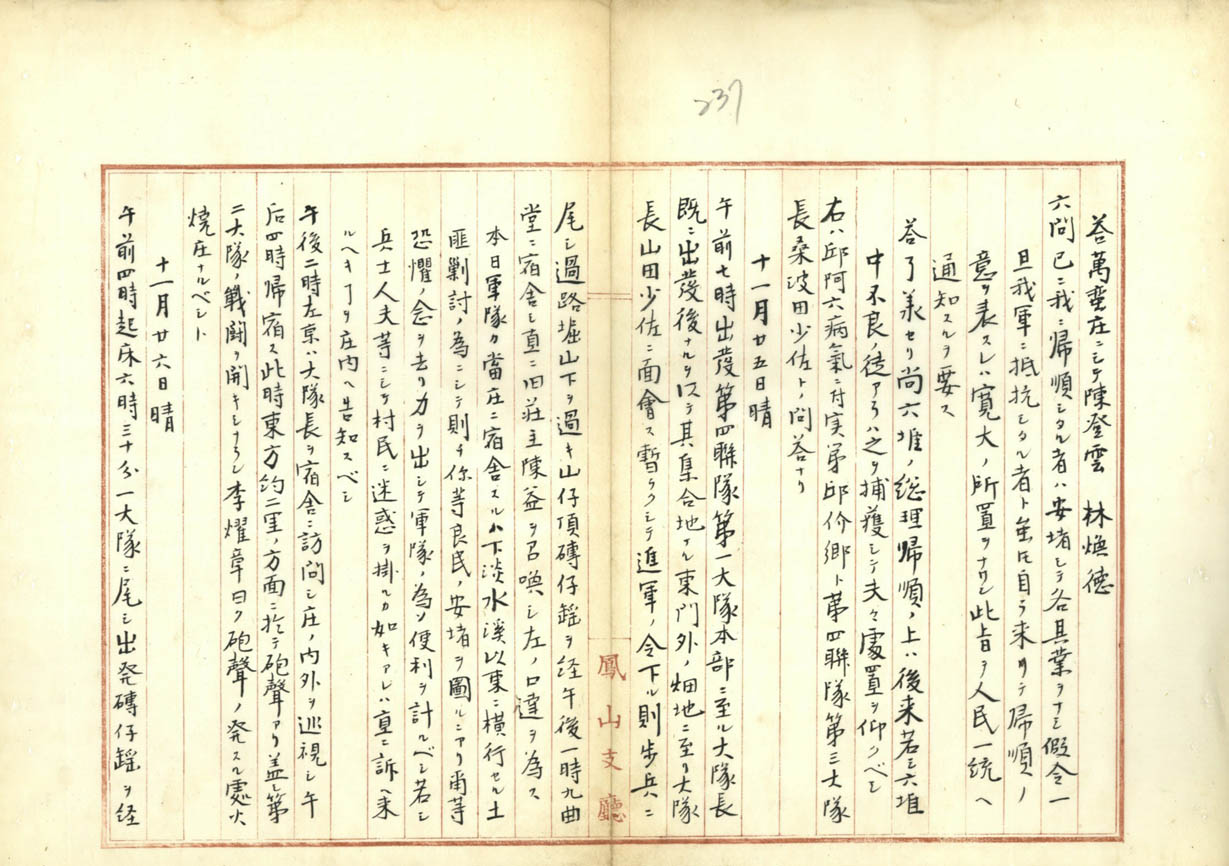 237
答萬蛮庄ニシテ陳澄雲　林煥德
六問已ニ我ニ帰順シタル者ハ安堵シテ各其業ヲナシ假令一
旦我軍ニ抵抗シタル者ト虽氏自ラ来リテ帰順ノ
意ヲ表スレハ寛大ノ所置ヲナサン此旨ヲ人民一統ヘ
通知スルヲ要ス
答了羕セリ尚六堆ノ総理帰順ノ上ハ後来若シ六堆
中不良ノ徒アラハ之ヲ捕獲シテ夫々處置ヲ仰クベシ
右ハ邱阿六病氣ニ付実弟邱价郷ト苐四聯隊第三大隊
長桒波田少佐トノ問答ナリ
十一月廿五日晴
午前七時出發第四聯隊第一大隊本部ニ至ル大隊長
既ニ出發後ナルヲ以テ其集合地ナル東門外ノ畑地ニ至リ大隊
長山田少佐ニ面會ス暫ラクシテ進軍ノ令下ル則歩兵ニ
鳳山支廳
尾シ過路堀山下ヲ過キ山仔頂磚仔磘ヲ経午後一時九曲
堂ニ宿舎シ直ニ旧莊主陳益ヲ召喚シ左ノ口達ヲ為ス
本日軍隊カ當庄ニ宿舎スルハ下淡水溪以東ニ横行セル土
匪剿討ノ為ニシテ則チ你等良民ノ安堵ヲ圖ルニアリ甭等
恐懼ノ念ヲ去リ力ヲ出シテ軍隊ノ為メ便利ヲ計ルベシ若シ
兵士人夫等ニシテ村民ニ迷惑ヲ掛ルカ如キアレハ直ニ訴ヘ来
ルヘキヿヲ庄内ヘ告知スベシ
午後二時左京ハ大隊長ヲ宿舎ニ訪問シ庄ノ内外ヲ巡視シ午
后四時帰宿ス此時東方約二里ノ方面ニ於テ砲聲アリ盖シ第
二大隊ノ戦闘ヲ開キシナラン李燿章曰ク砲聲ノ発スル處火
燒庄ナルベシト
十一月廿六日晴
午前四時起床六時三十分一大隊ニ尾シ出発磚仔磘ヲ経